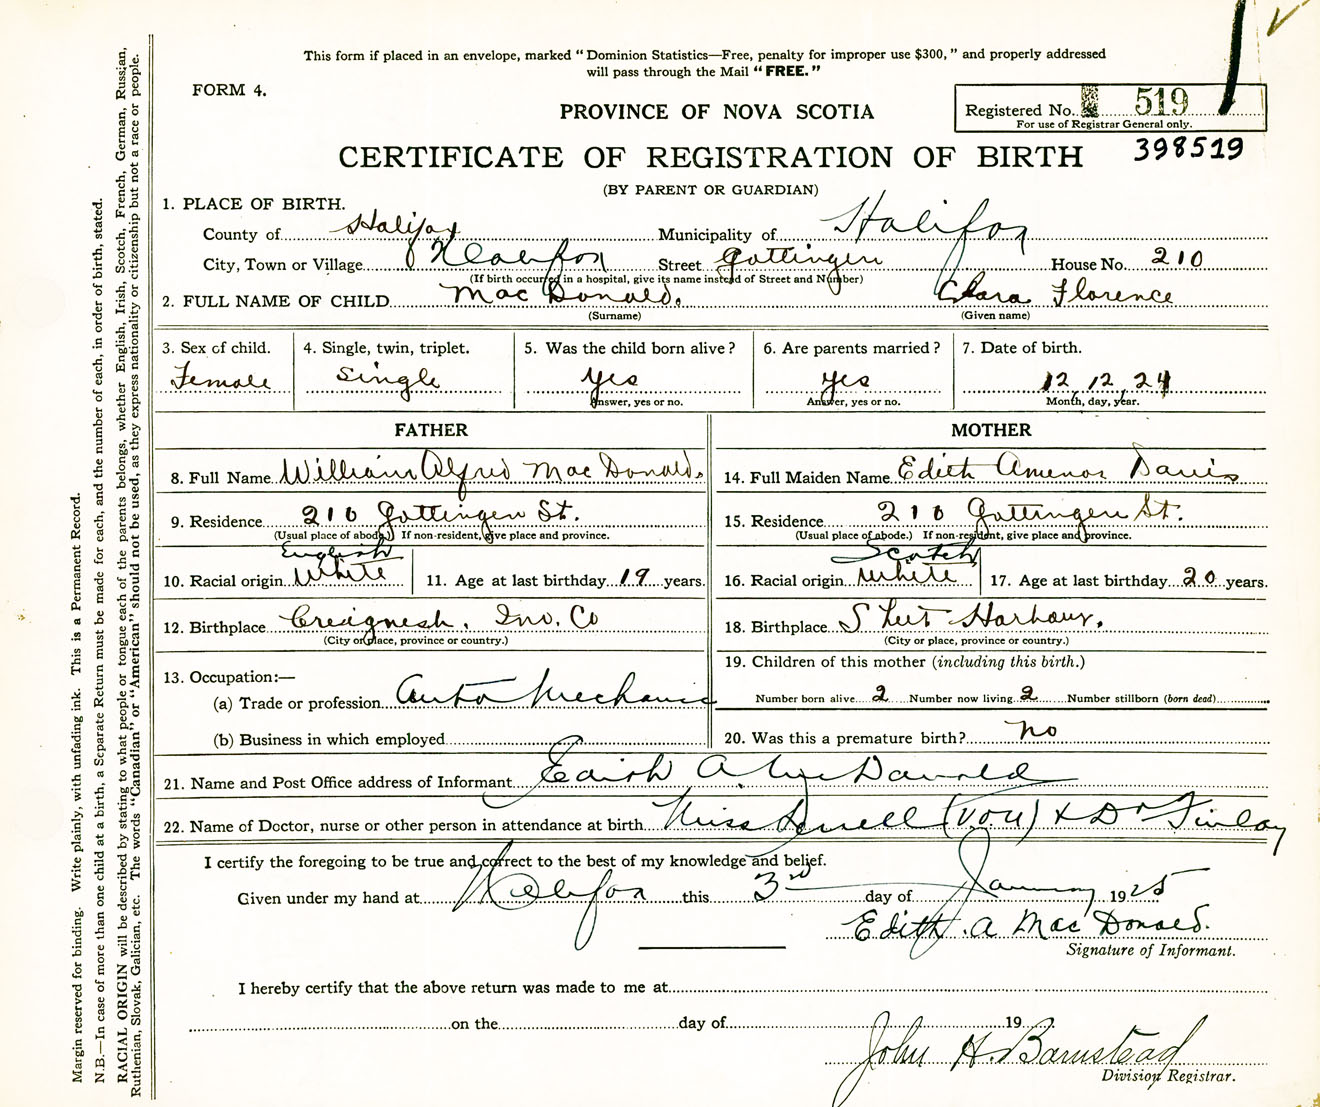 This form if placed in an envelope, marked "Dominion Statistics—Free, penalty for improper use $300," and properly addressed
will pass through the Mail "FREE."
FORM 4.
PROVINCE OF NOVA SCOTIA
Registered No. 519
For use of Registrar General only.
398519
CERTIFICATE OF REGISTRATION OF BIRTH
(BY PARENT OR GUARDIAN)
1. PLACE OF BIRTH.
County of Halifax Municipality of Halifax
City, Town or Village Halifax Street Gottingen House No. 210
(If birth occurred in a hospital, give its name instead of Street and Number)
2. FULL NAME OF CHILD MacDonald. Clara Florence
(Surname) (Given name)
3. Sex of child. 4. Single, twin, triplet. 5. Was the child born alive? 6. Are parents married? 7. Date of birth.
Female Single Yes Yes 12 12 24
Answer, yes or no. Answer, yes or no. Month, day, year.
FATHER MOTHER
8. Full Name William Alfred MacDonald. 14. Full Maiden Name Edith Amenor Davis
9. Residence 210 Gottingen St. 15. Residence 210 Gottingen St.
(Usual place of abode.) If non-resident, give place and province. (Usual place of abode.) If non-resident, give place and province.
English Scotch
10. Racial origin White 11. Age at last birthday 19 years. 16. Racial origin White 17. Age at last birthday 20 years.
12. Birthplace Creignesh, Inv. Co 18. Birthplace Sheet Harbour.
(City or place, province or country.) (City or place, province or country.)
13. Occupation:— 19. Children of this mother (including this birth.)
(a) Trade or profession Auto Mechanic Number born alive 2 Number now living 2 Number stillborn (born dead)
(b) Business in which employed 20. Was this a premature birth? no
21. Name and Post Office address of Informant Edith A MacDonald
22. Name of Doctor, nurse or other person in attendance at birth Miss (V.O.N) & Dr Finlay
I certify the foregoing to be true and correct to the best of my knowledge and belief.
Given under my hand at Halifax this 3rd day of January 1925
Edith. A MacDonald.
Signature of Informant.
I hereby certify that the above return was made to me at
on the day of 19
John H. Barnstead
Division Registrar.
Margin reserved for binding. Write plainly, with unfading ink. This is a Permanent Record.
N.B.—In case of more than one child at a birth, a Separate Return must be made for each, and the number of each, in order of birth, stated.
RACIAL ORIGIN will be described by stating to what people or tongue each of the parents belongs, whether English, Irish, Scotch, French, German, Russian,
Ruthenian, Slovak, Galician, etc. The words "Canadian" or "American" should not be used, as they express nationality or citizenship but not a race or people.